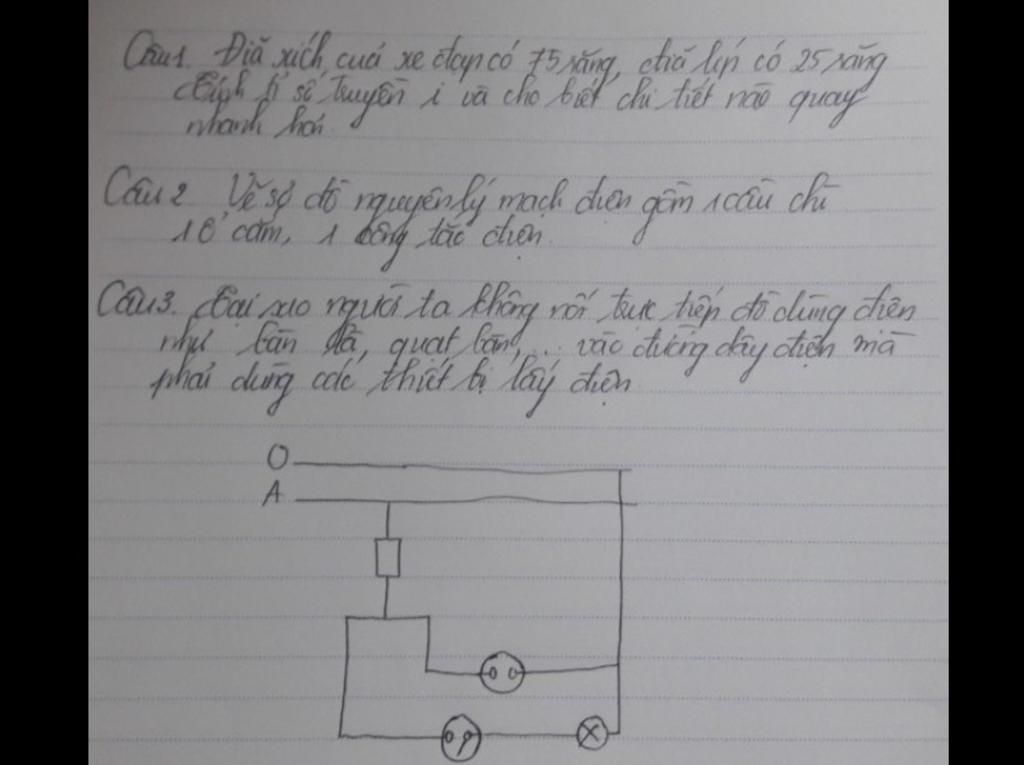 Câu1. Điã xích cuả xe đạp có 75 răng, điã líp có 25 răng
tính tỉ số truyền i và cho biết chi tiết nào quay
nhanh hơn
Câu2 Vẽ sơ đồ nguyên lý mạch điện gồm 1 cầu chì
1 ổ cắm, 1 công tắc điện
Câu3. tại sao người ta không nối trực tiếp đồ dùng điện
như bàn là, quạt bàn,... vào đường dây điện mà
phải dùng các thiết bị lấy điện
O
A